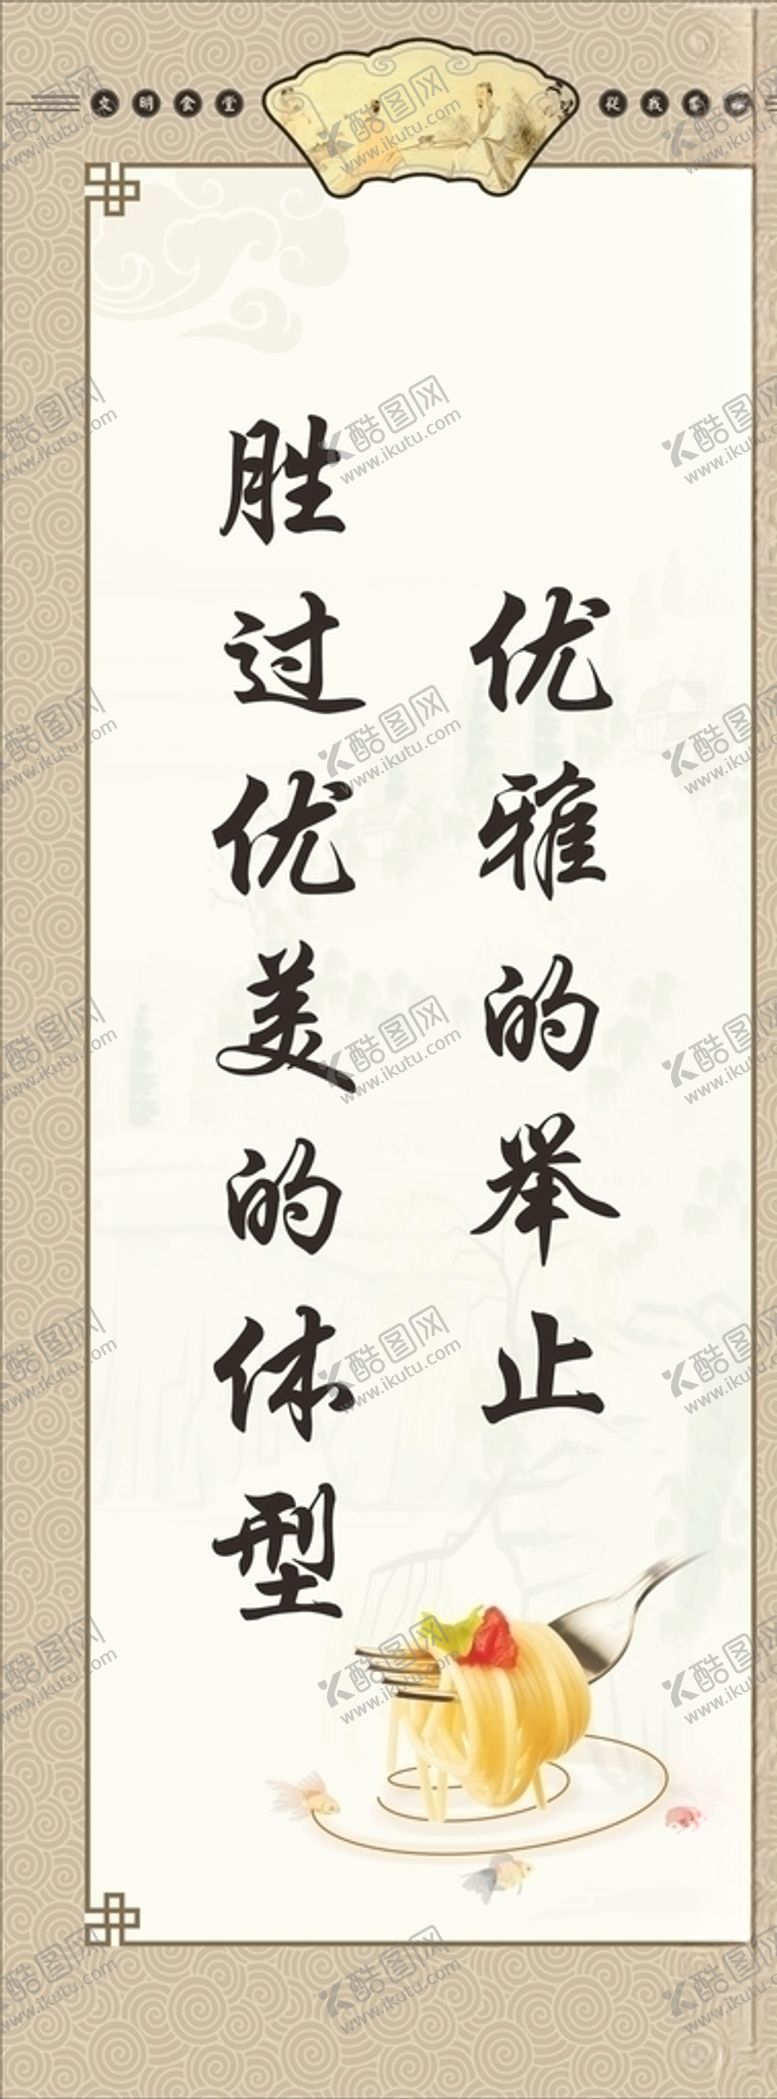 文明食堂
從我
优雅的举止
胜过优美的体型
酷图网
www.ikutu.com